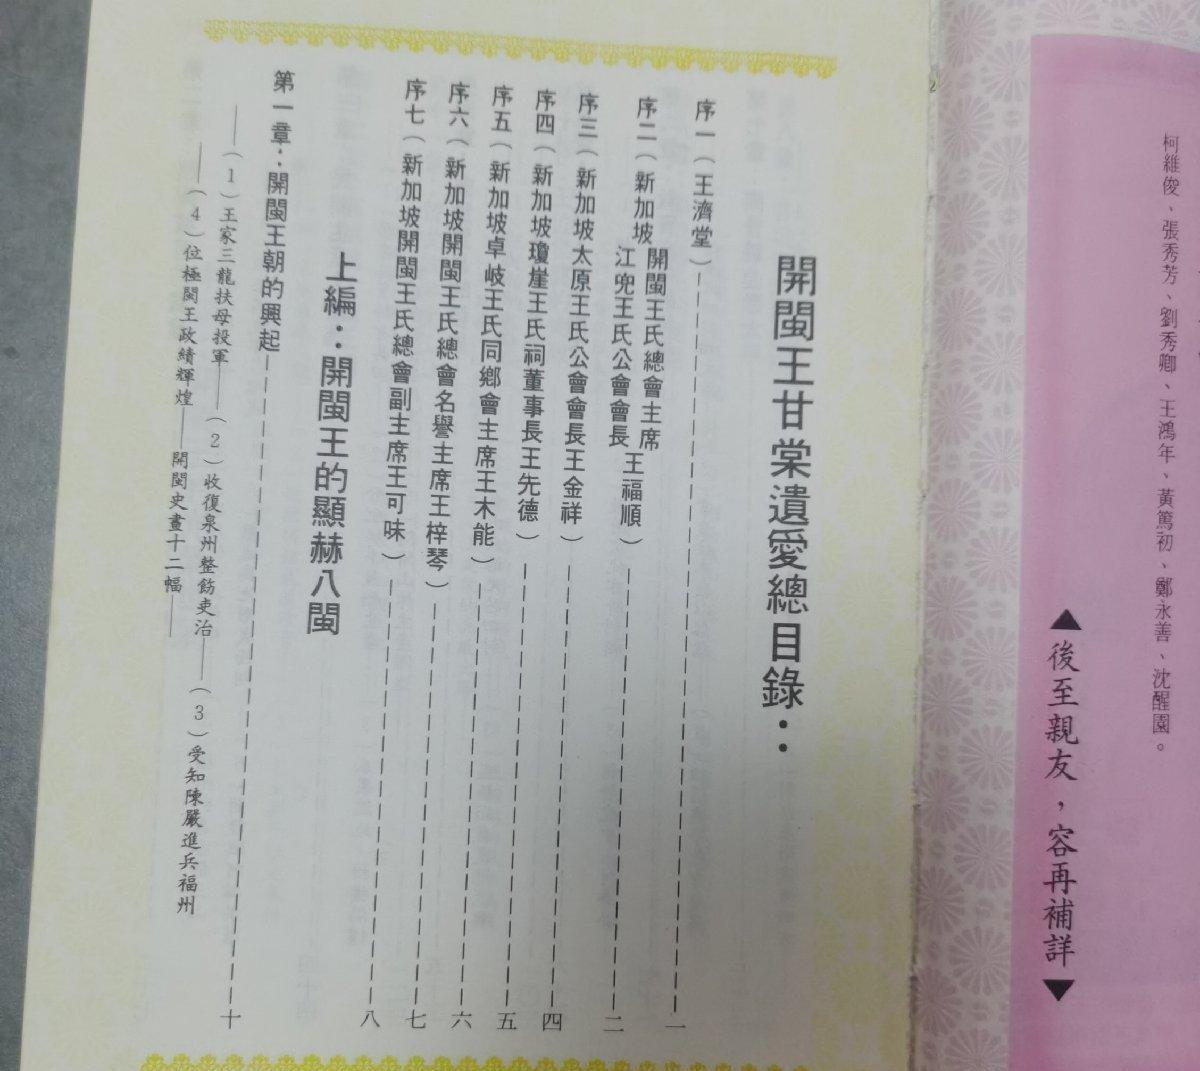 柯維俊、張秀芳、劉秀卿、王鴻年、黃篤初、鄭永善、沈醒園。
▲後至親友，容再補詳▼
開閩王甘棠遺愛總目錄：
序一（王濟堂）一
序二（新加坡開閩王氏總會主席江兜王氏公會會長王福順）二
序三（新加坡太原王氏公會會長王金祥）四
序四（新加坡瓊崖王氏祠董事長王先德）五
序五（新加坡卓岐王氏同鄉會主席王木能）六
序六（新加坡開閩王氏總會名譽主席王梓琴）七
序七（新加坡開閩王氏總會副主席王可味）八
上編：開閩王的顯赫八閩
第一章：開閩王朝的興起十
——（1）王家三龍扶母投軍——（2）收復泉州整飭吏治——（3）受知陳嚴進兵福州
——（4）位極閩王政績輝煌——開閩史畫十二幅——